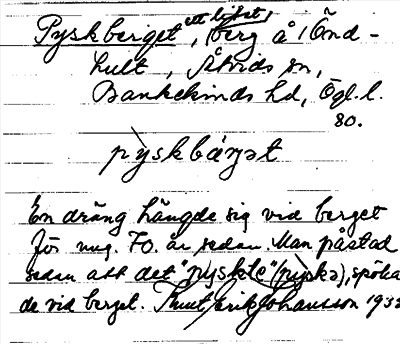 Pyskberget, ett ljust, berg å Önd-
hult, Åtvids sn,
Bankekinds hd, Ögl. l.
80.
pyskbärjət
En dräng hängde sig vid berget
för ung. 70. år sedan. Man påstod
sedan att det "pyskte" (pyskə), spöka-
de vid berget. Knut Erik Johansson 1932